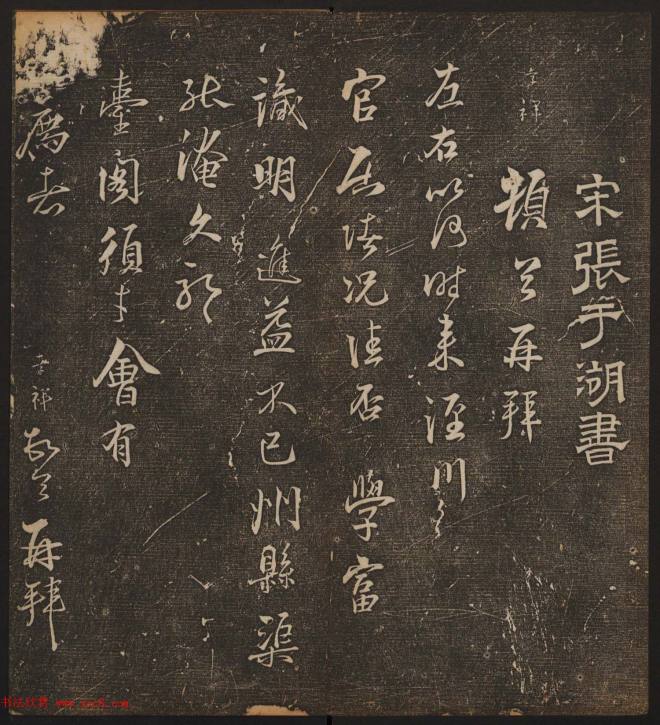 宋張于湖書
孝祥
頓首再拜
左右以何時來涇川
官居情况佳否學富
識明進益不已州縣渠
能淹久耶
臺閣須才會有
薦者
孝祥敬覆再拜
书法欣赏 www.yac8.com